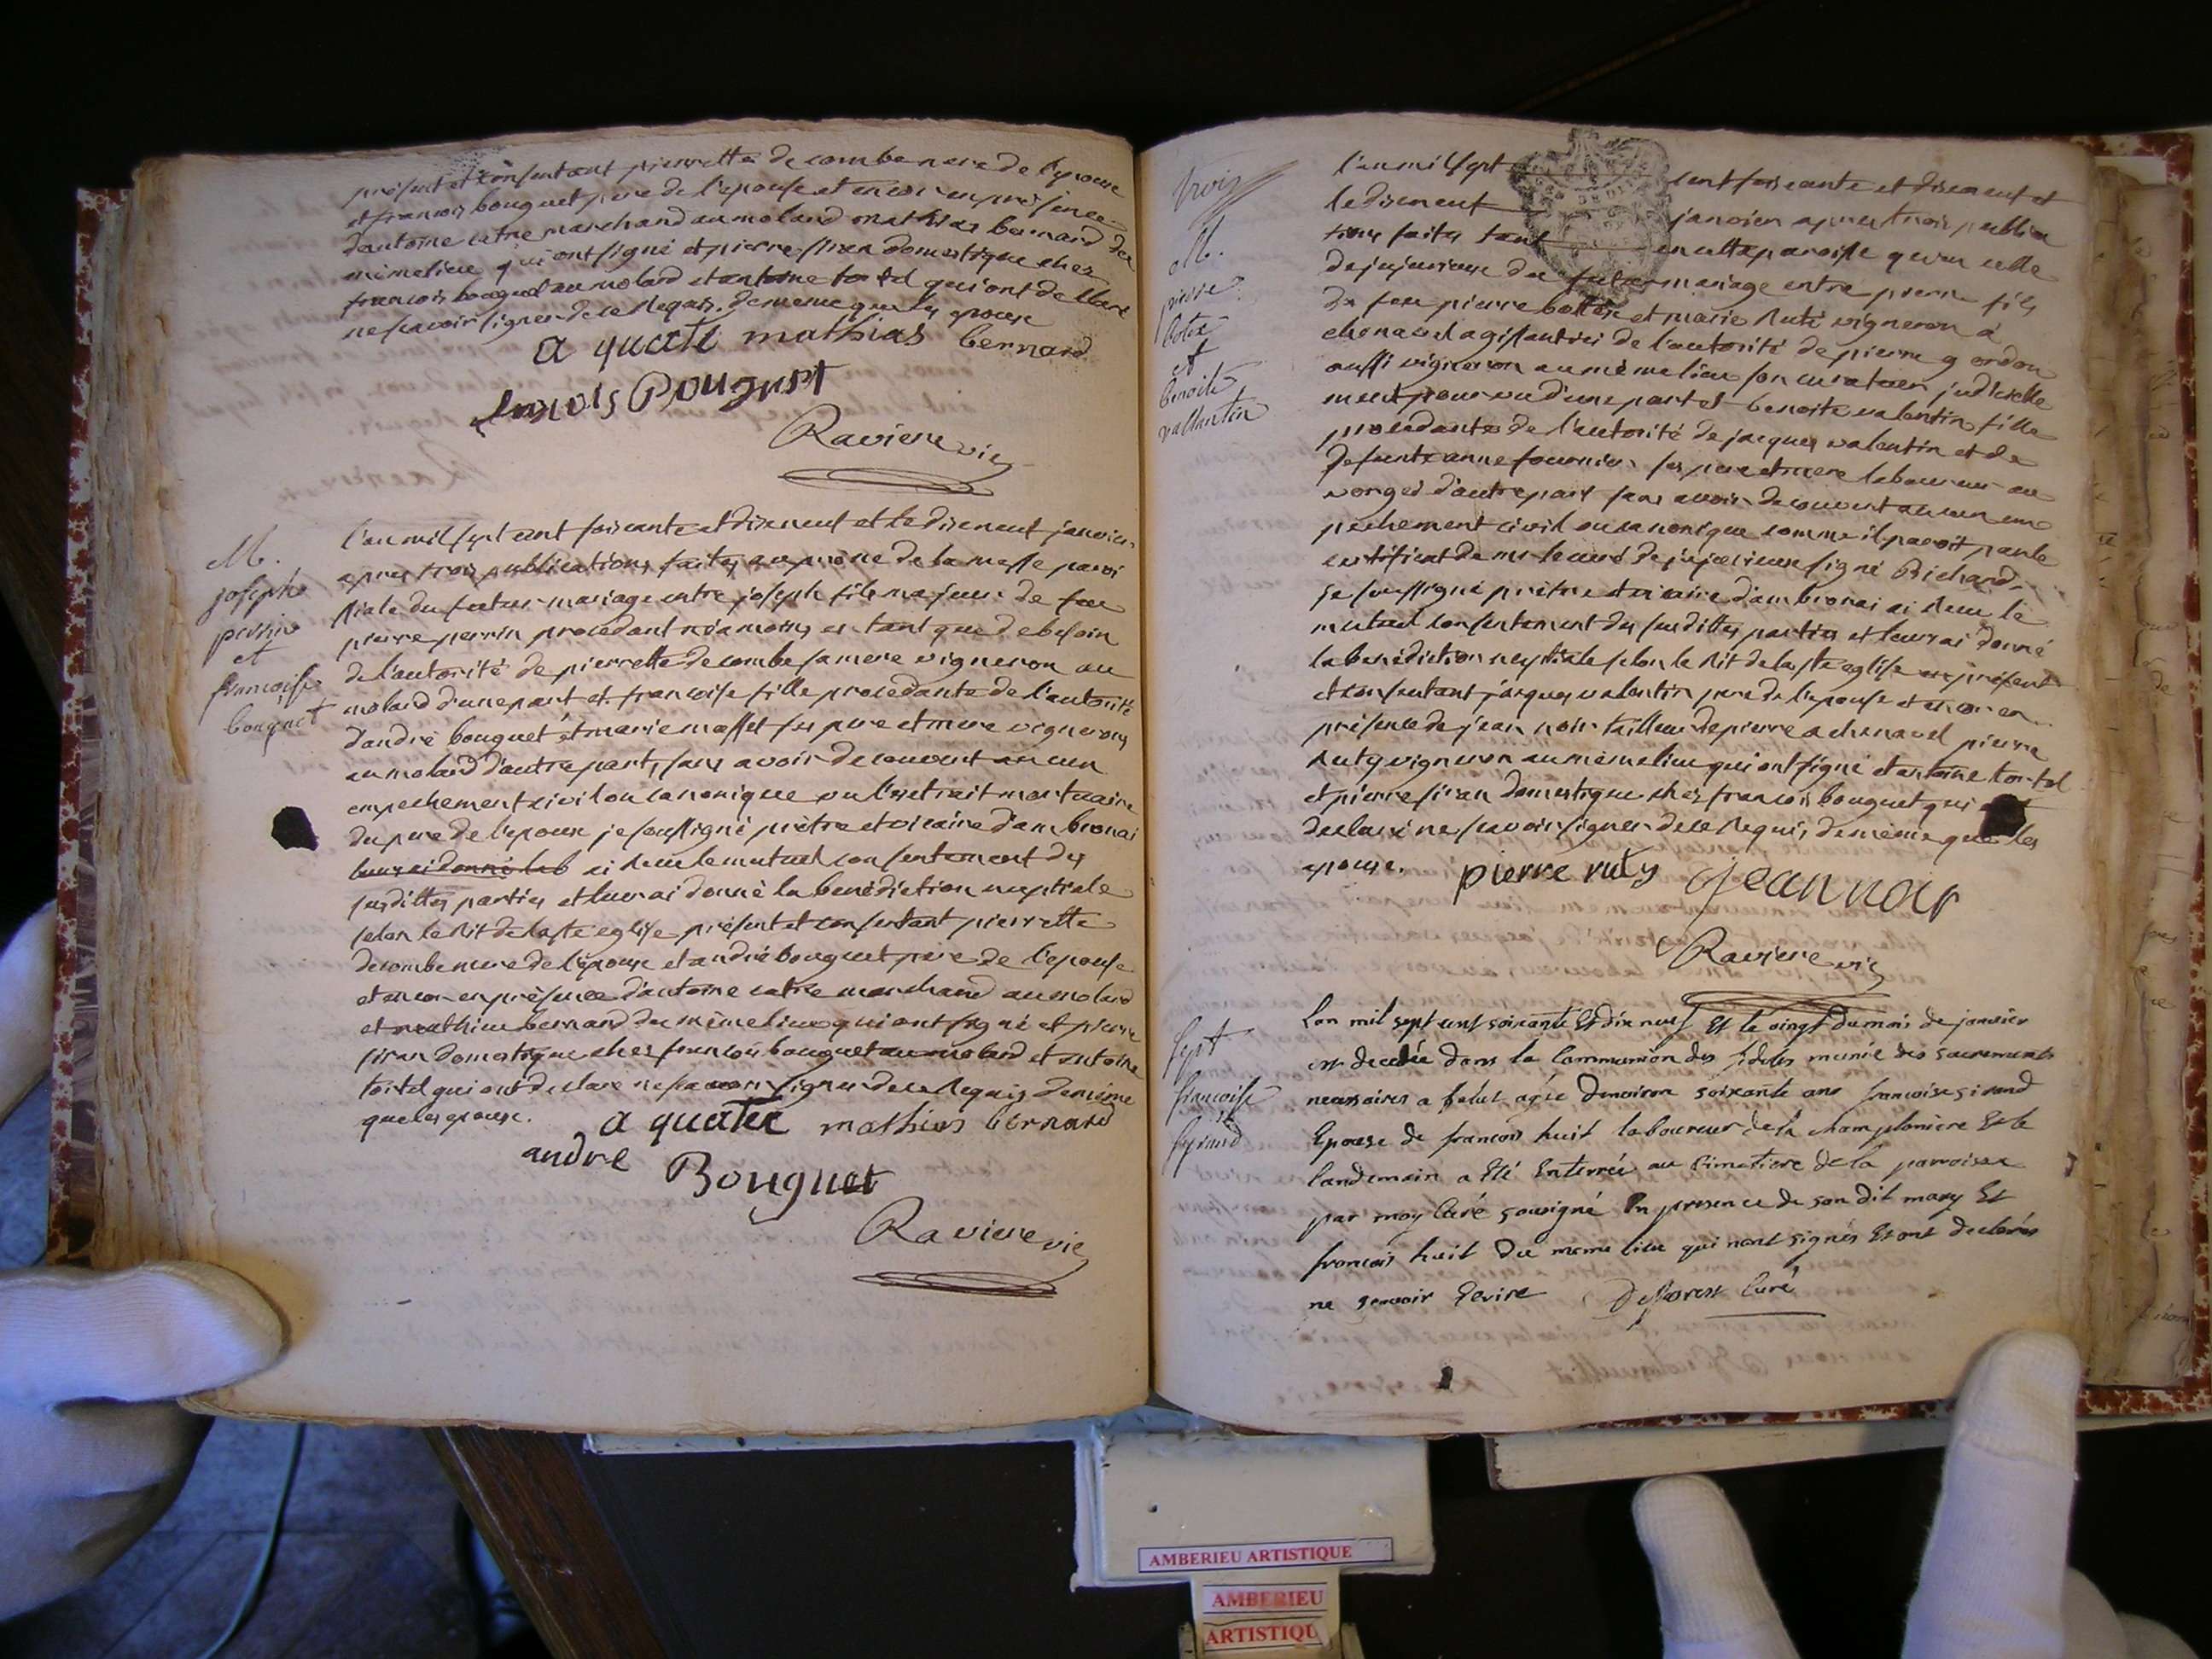 présent et consentant pierrette decombe mere de l'epoux
et francois bouquet pere de l'epouse et encor en présence
d'antoine catre marchand au molard mathias bernard du
mime lieu qui ont signé et pierre siran domestique chez
francois bouquet au molard et antoine tortel qui ont declaré
ne scavoir signer de ce requis. de meme que les epoux
a quatre mathias bernard
francois Bouguet
Raviere vic
M.
joseph
perrin
et
francoise
bouquet
l'an mil sept cent soisante et disneuf et le disneuf janvier
apres trois publications faites au prone de la messe paroi
ssiale du futur mariage entre joseph fils majeur de feu
pierre perrin procedant néamoins en tant que de besoin
de l'autorité de pierrette decombe sa mere vigneron au
molard d'une part et francoise fille procedante de l'autorité
d'andré bouquet et marie masset ses pere et mere vignerons
au molard d'autre part, sans avoir decouvert aucun
empechement civil ou canonique vu l'extrait mortuaire
du pere de l'epoux je soussigné prêtre et vicaire d'ambronai
leurs ai donné la b ai recu le mutuel consentement des
susdittes parties et leur ai donné la benédiction nuptiale
selon le rit de la ste eglise présent et consentant pierrette
decombe mere de l'epoux et andré bouquet pere de l'epouse
et encor en présence d'antoine catre marchand au molard
et mathieu bernard du même lieu qui ont signé et pierre
siran domestique chez francois bouquet au molard et antoine
tortel qui ont declaré ne scavoir signer de ce requis de même
que les epoux.
a quatre mathias bernard
andre Bouguet
Raviere vic
trois
M.
pierre
botex
et
benoite
vallantin
l'an mil sept cent soiscante et disneuf et
le disneuf janvier apres trois publica
tions faites tant en cette paroisse qu'en celle
de jujurieux du futur mariage entre pierre fils
de feu pierre bottex et marie ruti vigneron à
chenavel agissant ici de l'autorité de pierre gordon
aussi vigneron au même lieu son curateur judicielle
ment pourvu d'une part et benoite valentin fille
procedante de l'autorité de jacques valentin et de
defunte anne fournier ses pere et mere laboureur au
vorges d'autre part sans avoir decouvert aucun em
pechement civil ou canonique comme il paroit par le
certificat de mr le curé de jujurieux signé Richard
je soussigné prietre et vicaire d'ambronai ai recu le
mutuel consentement des susdittes parties et leur ai donné
la benédiction nuptiale selon le rit de la ste eglise en présent
et consentant jacques valentin pere de l'epouse et encor en
présence de jean noir tailleur de pierre a chenavel pierre
ruty vigneron au même lieu qui ont signé et antoine tortel
et pierre siran domestique chez francois bouquet qui
declaré ne scavoir signer de ce requis de même que les
epoux. pierre ruty jean noir
Raviere vic
sept
francoise
Gyrand
Lan mil sept cent soixante Et dix neuf Et le vingt du mois de janvier
est decedée dans la Communion des fideles munie des sacrements
necessaires a salut agée denviron soixante ans francoise girand
Epouse de francois huit laboureur de la champlaniere Et le
landemain a Eté Enterrée au Cimetiere de la parroisse
par moy Curé sousigné En presence de son dit mary Et
francois huit du meme lieu qui nont signés Et ont declarés
ne scavoir Ecrire Curé
AMBERIEU ARTISTIQUE
AMBERIEU
ARTISTIQU